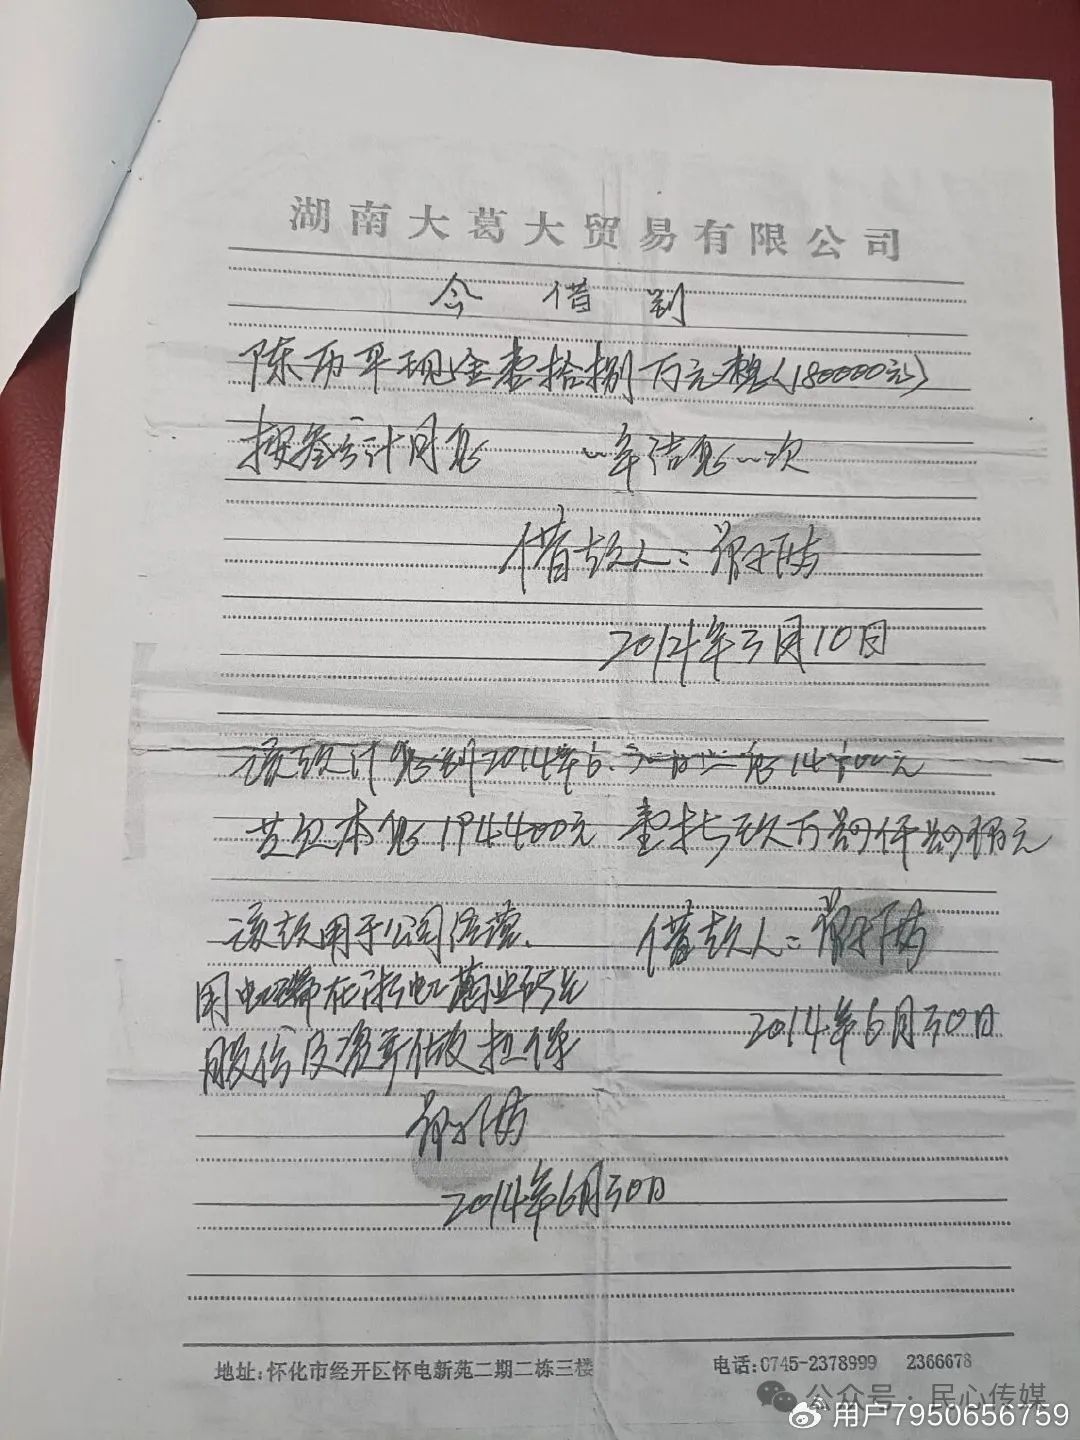 湖南大葛大贸易有限公司
今借到
陈 平现金壹拾捌万元整(180000元)
按叁分计月息 一年结息一次
借款人:
2014年3月10日
该款计息到2014年6.30日止息14400元
共包本息194400元 壹拾玖万肆仟肆佰元
该款用于公司经营、
借款人:
用
2014年6月30日
股份及资产做担保
2014年6月30日
地址:怀化市经开区怀电新苑二期二栋三楼
电话:0745-2378999 2366678
公众号·民心传媒
用户7950656759